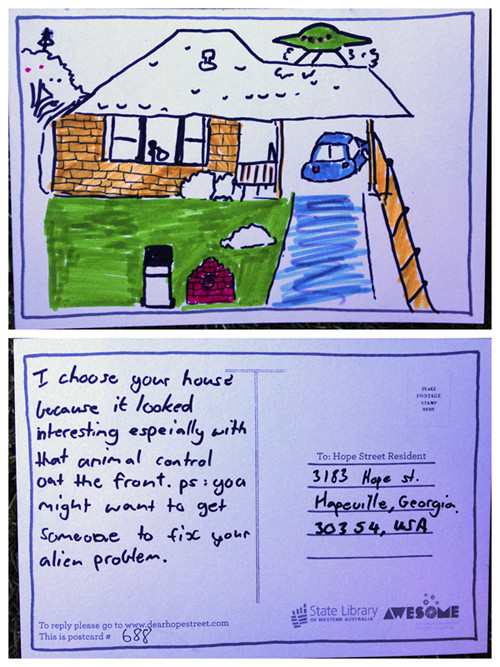 I choose your house
because it looked
interesting espeially with
that animal control
out the front. ps: you
might want to get
someone to fix your
alien problem.
PLACE
POSTAGE
STAMP
HERE
To: Hope Street Resident
3183 Hope st.
Hapeville, Georgia.
30354, USA
To reply please go to www.dearhopestreet.com
This is postcard # 688
State Library
OF WESTERN AUSTRALIA
AWESOME